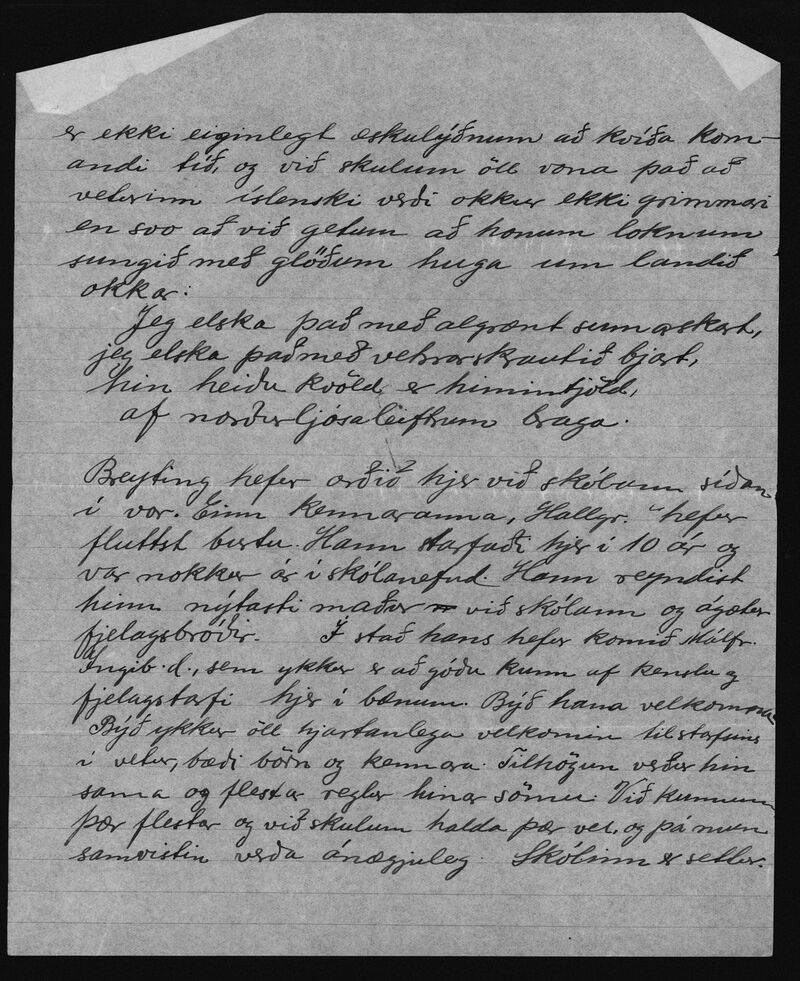 er ekki eiginlegt æskulýðnum að kvíða kom-
andi tíð, og við skulum öll vona það að
veturinn íslenski verði okkur ekki grimmari
en svo að við getum að honum loknum
sungið með glöðum huga um landið
okkar:
Jeg elska það með algrænt sumarskart,
jeg elska það með vetrarskrautið bjart,
hin heiðu kvöld er himintjöld,
af norðurljósaleiftrum braga.
Breyting hefur orðið hjer við skólann síðan
í vor. Einn kennaranna, Hallgr. hefur
fluttst burtu. Hann starfaði hjer í 10 ár og
var nokkur ár í skólanefnd. Hann reyndist
hinn nýtasti maður við skólann og ágætur
fjelagsbróðir. Í stað hans hefur komið Málfr.
Ingib.d., sem ykkur er að góðu kunn af kenslu og
fjelagstarfi hjer í bænum. Býð hana velkomna
Býð ykkur öll hjartanlega velkomin til starfsins
í vetur, bæði börn og kennara. Tilhögun verður hin
sama og flestar reglur hinar sömu. Við kunnum
þær flestar og við skulum halda þær vel, og þá mun
samvistin verða ánægjuleg. Skólinn er settur.